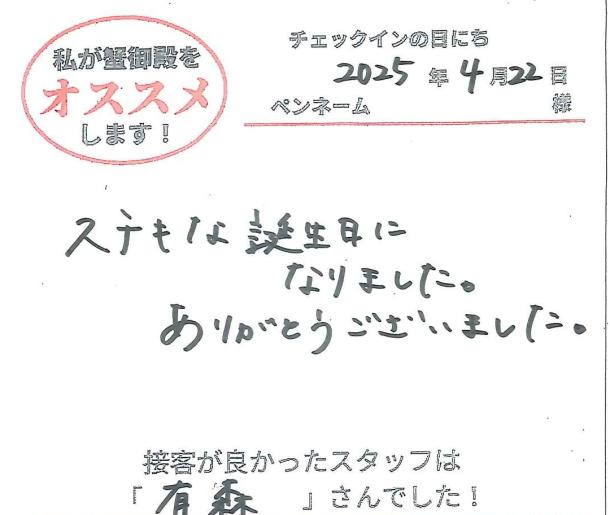 私が蟹御殿を
オススメ
します!
チェックインの日にち
2025年4月22日
ペンネーム 様
ステキな誕生日に
なりました。
ありがとうございました。
接客が良かったスタッフは
「有森」さんでした!